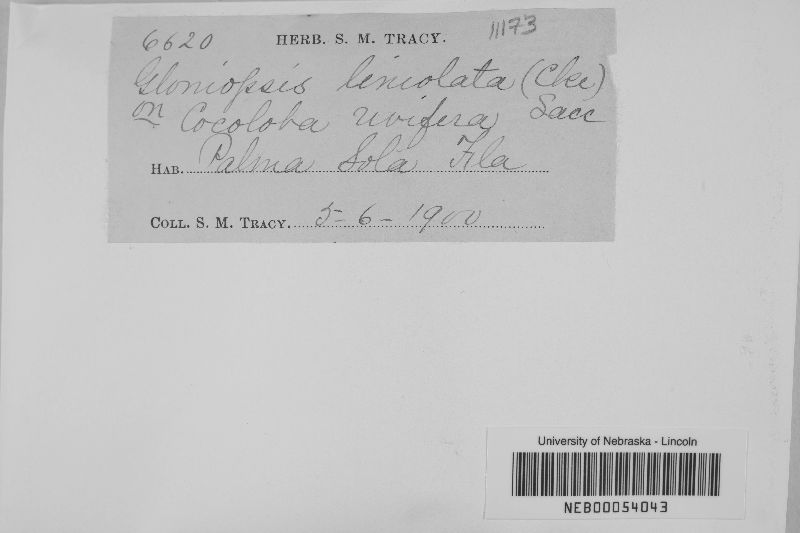 6620 HERB. S. M. TRACY. 11173
Gloniopsis liniolata (Cke)
on Cocoloba uvifera Sacc
HAB. Palma Sola Fla
COLL. S. M. TRACY. 5-6-1900
University of Nebraska - Lincoln
NEB00054043